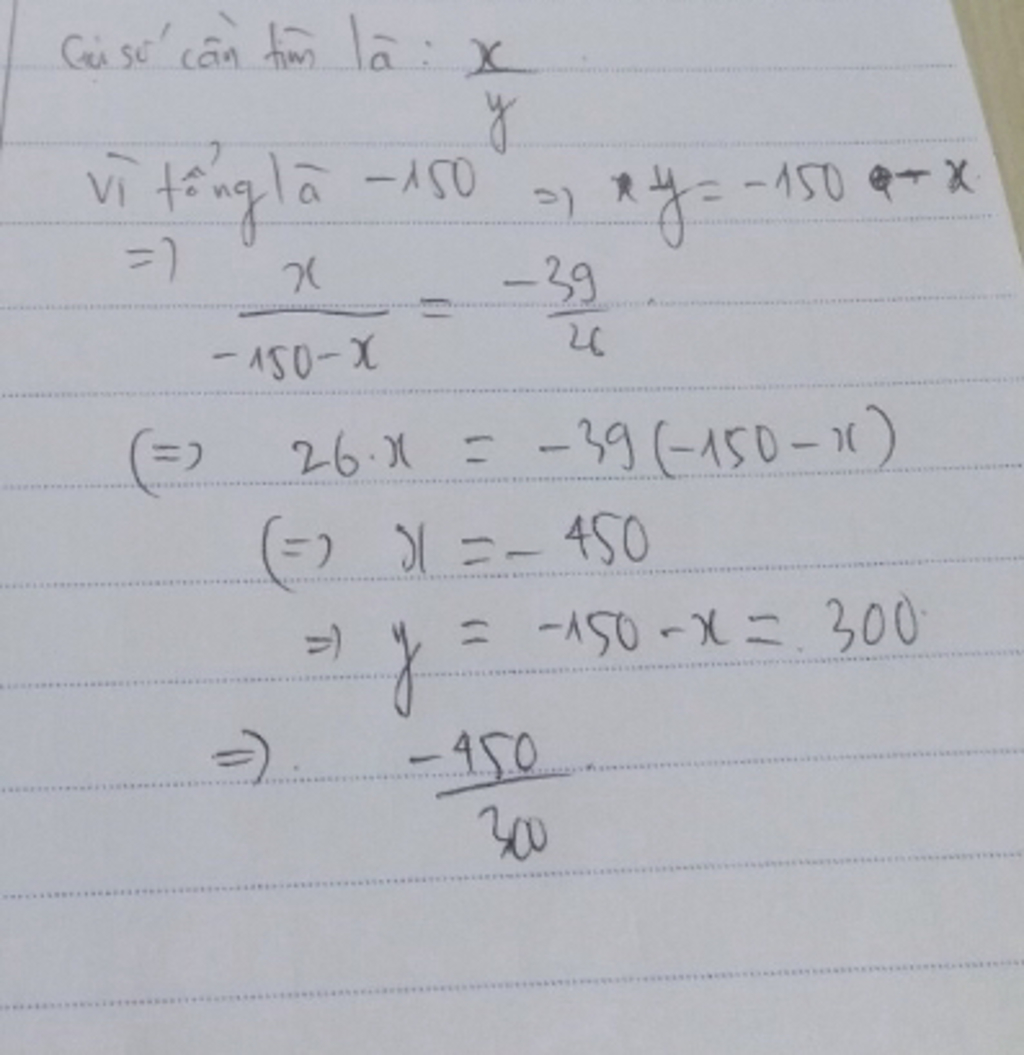 Gỉa sử cần tìm là: x/y
Vì tổng là -150 => y = -150 - x
=> x/(-150-x) = -39/26
(=> 26.x = -39(-150-x)
(=> x = -450
=> y = -150-x = 300
=> -450/300